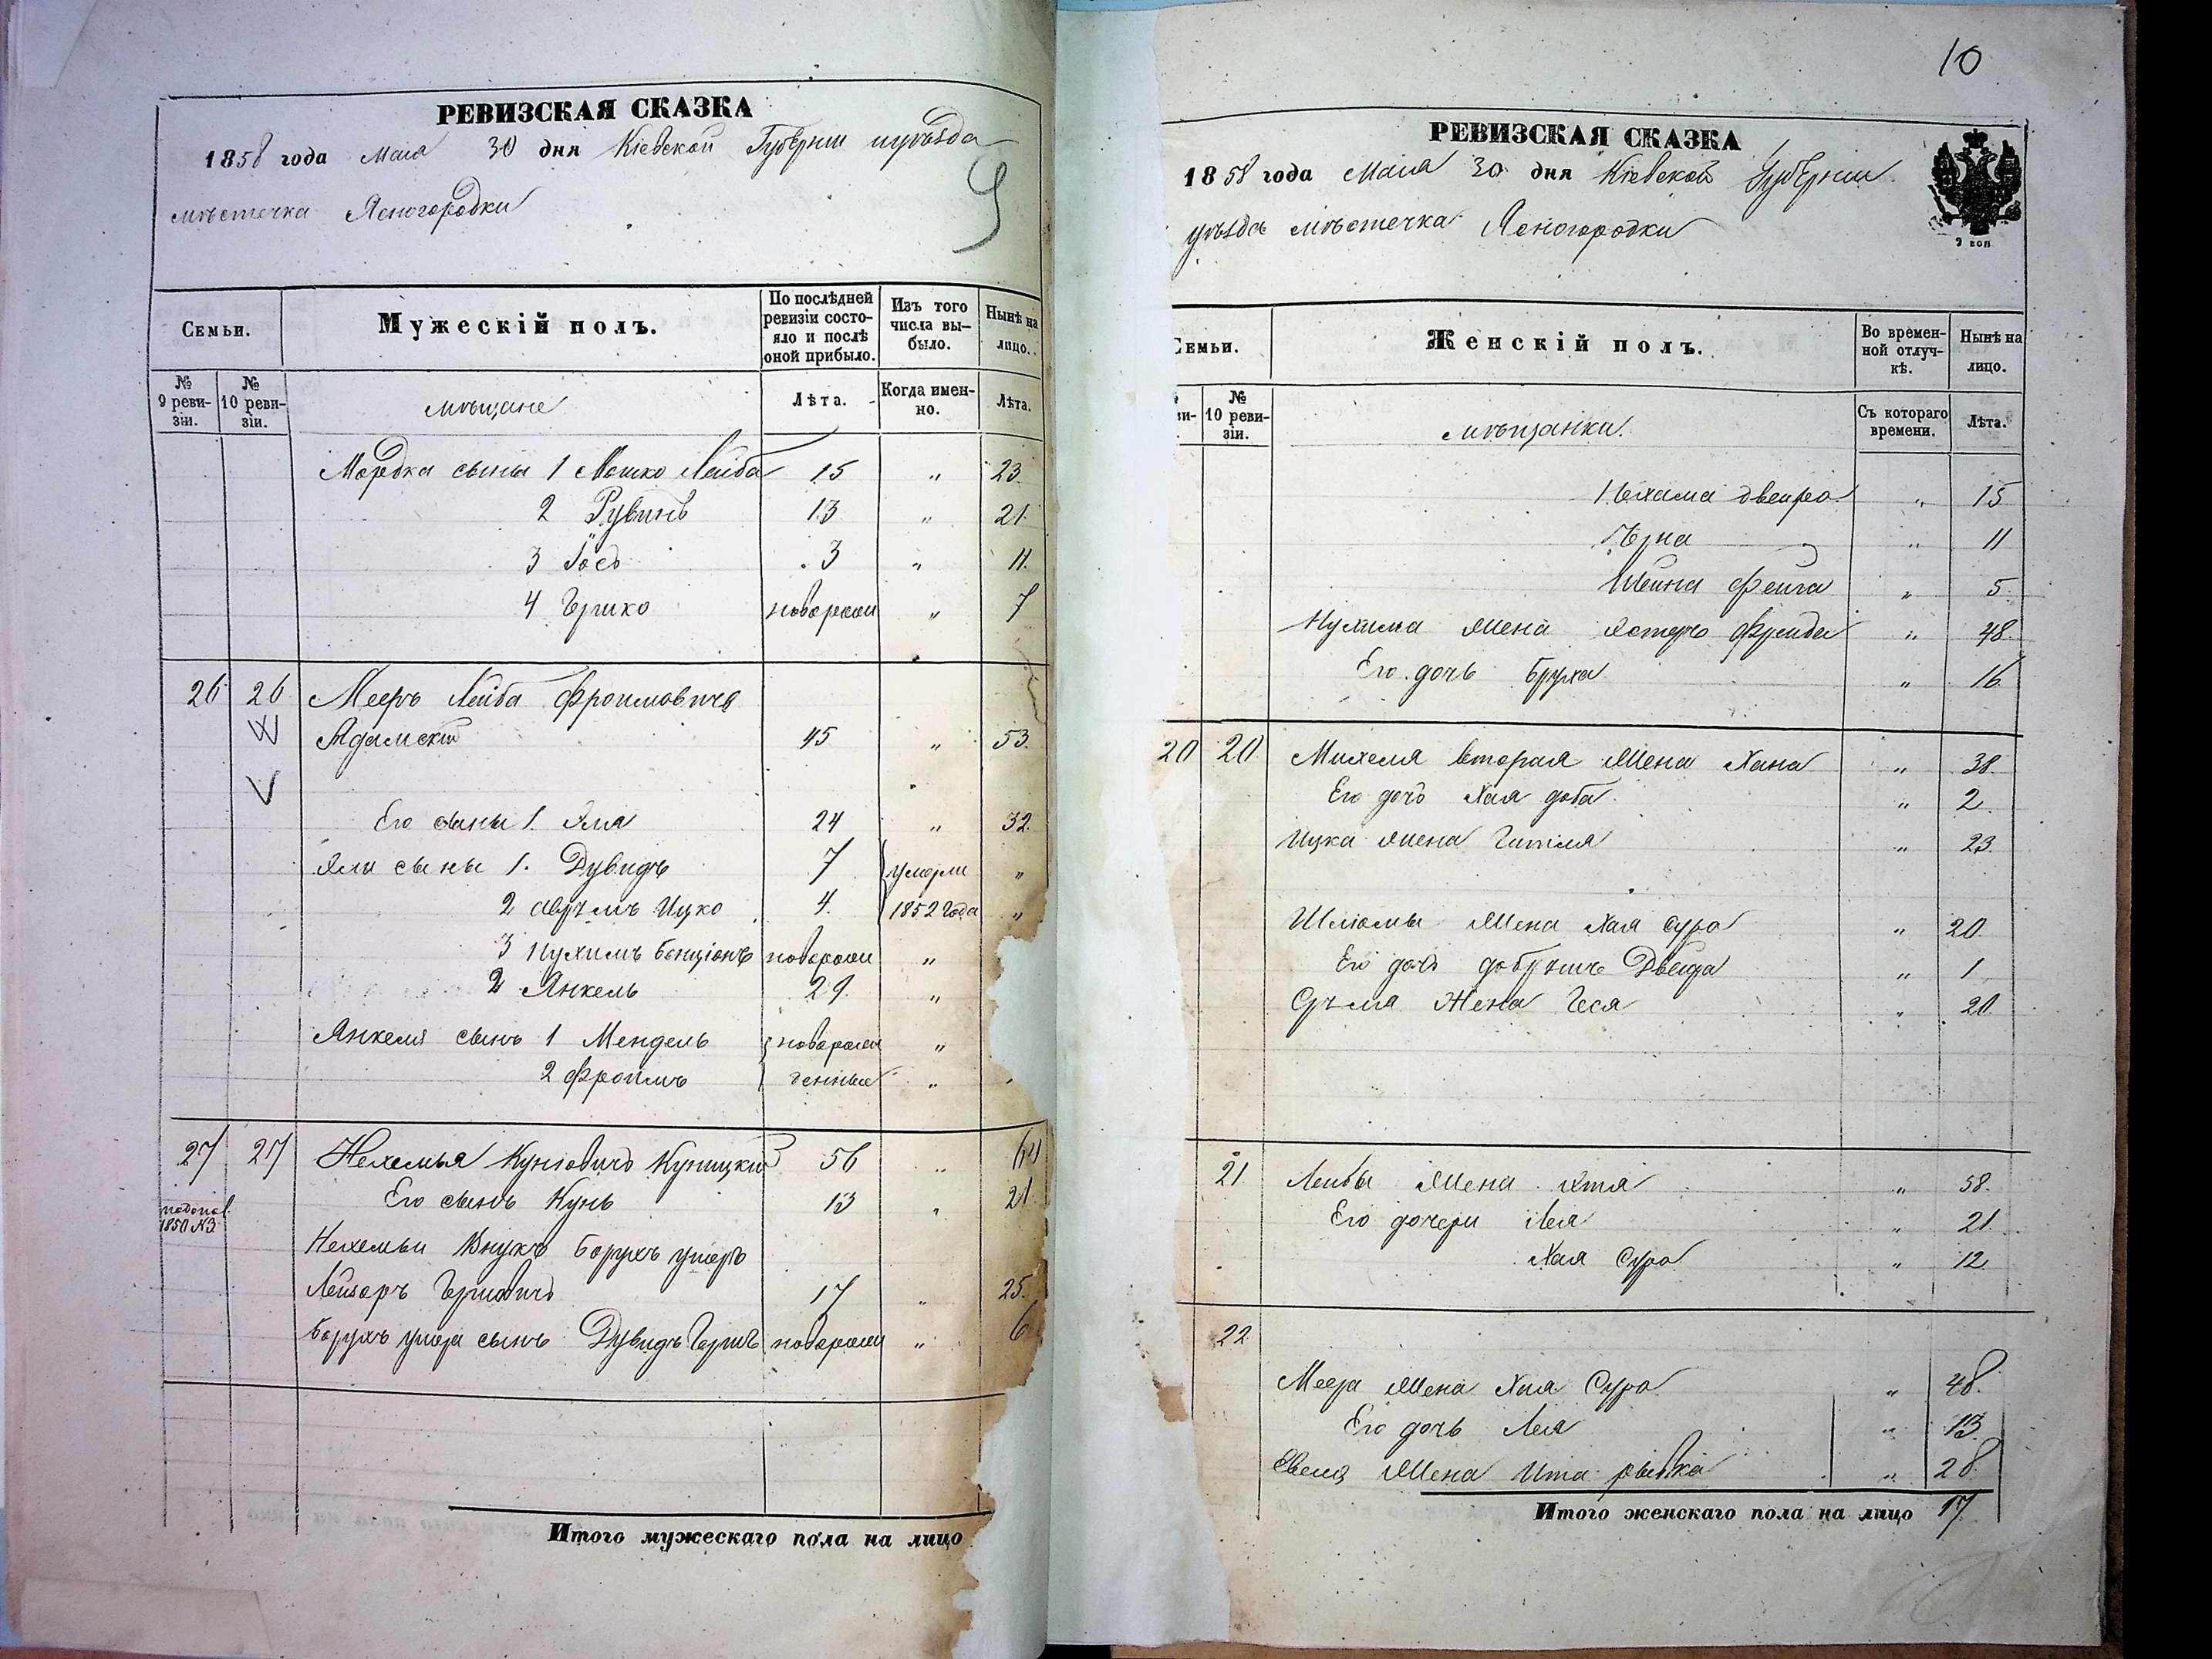 РЕВИЗСКАЯ СКАЗКА
1858 года Мая 30 дня Кіевской Губерніи и уѣзда
мѣстечка Ясногородки
9
Семьи.
Мужескій полъ.
По послѣдней ревизіи состояло и послѣ оной прибыло.
Изъ того числа выбыло.
Нынѣ на лицо.
№ 9 ревизіи.
№ 10 ревизіи.
мѣщане
Лѣта.
Когда именно.
Лѣта.
Мордка сыны 1 Мошко Лейба 15 " 23.
2 Рувинъ 13 " 21.
3 Іосъ 3 " 11.
4 Гершко новорож " 7
26 26 Мееръ Лейба Фроимовичъ
Адамскій 45 " 53.
Его сыны 1. Эля 24 " 32.
Эли сыны 1. Дувидъ 7 умерли "
2 Аврумъ Ицко 4. 1852 года "
3 Нухимъ Бенціонъ новорож "
2 Янкель 29. "
Янкеля сынъ 1 Мендель новорож "
2 Фроимъ денные "
27 27 Нехемья Куніовичъ Куницкій 56 " 64
Его сынъ Кунь 13 " 21
1850 №3
Нехемьи внукъ Борухъ умеръ
Лейзоръ Гершовичъ 17 " 25.
Борухъ умера сынъ Дувидъ Гершъ новорож " 6
Итого мужескаго пола на лицо
10
РЕВИЗСКАЯ СКАЗКА
1858 года Мая 30 дня Кіевской Губерніи
уѣзда мѣстечка Ясногородки
9 коп
Семьи.
Женскій полъ.
Во временной отлучкѣ.
Нынѣ на лицо.
№ 10 ревизіи.
мѣщанки.
Съ котораго времени.
Лѣта.
Нехама Двейра " 15
" 11
Шейна Фейга " 5.
Нухима жена Эстеръ Фрейда " 48.
Его дочь Бруха " 16
20 20 Михеля вторая жена Хана " 38.
Его дочь Хая Доба " 2
Ицка жена Гитля " 23.
Шліомы жена Хая Сура " 20.
Его дочь Добрышъ Двейра " 1
Сруля жена Геся " 20.
21 Лейбы жена Этя " 58.
Его дочери Лея " 21.
Хая Сура " 12
22
Меера жена Хая Сура " 48.
Его дочь Лея " 13.
жена Ита Рывка " 28.
Итого женскаго пола на лицо 17